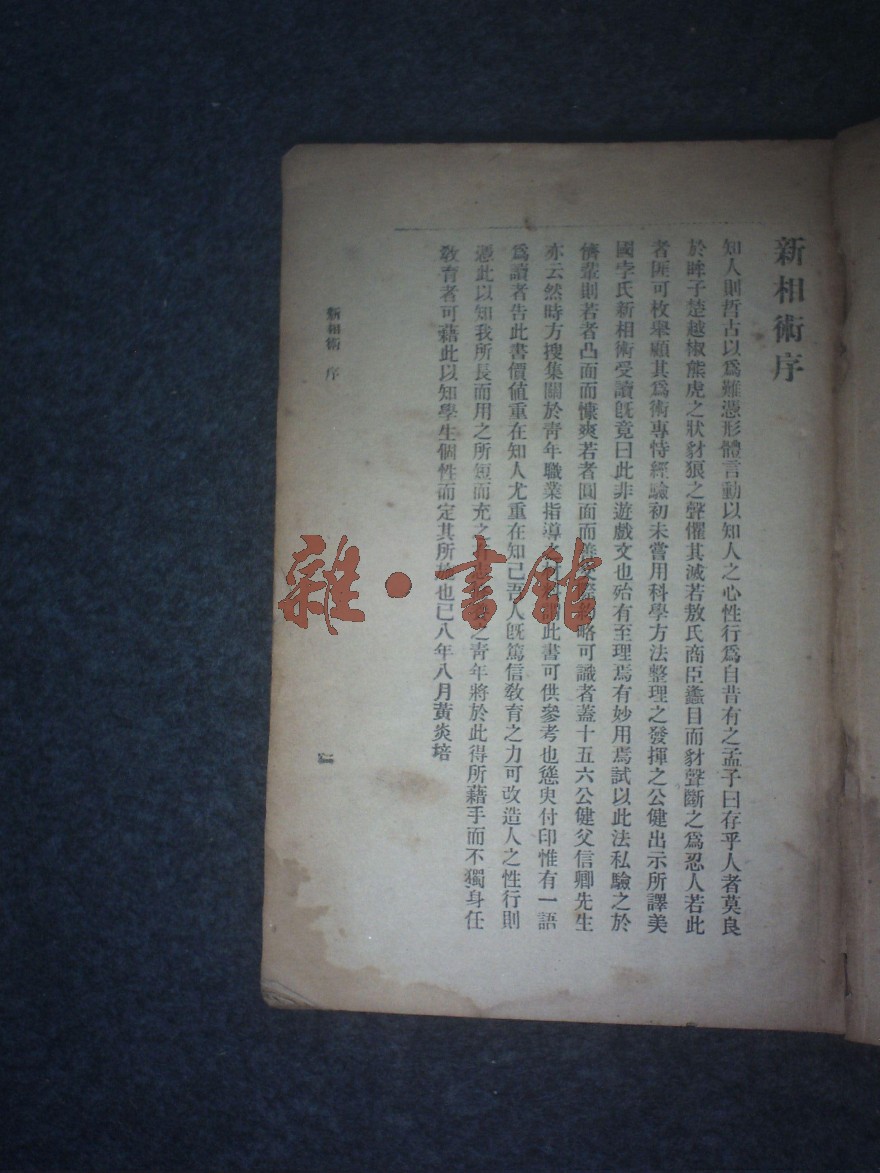 新相術序
知人則哲古以爲難憑形體言動以知人之心性行爲自昔有之孟子曰存乎人者莫良
於眸子楚越椒熊虎之狀豺狼之聲懼其滅若敖氏商臣蠭目而豺聲斷之爲忍人若此
者匪可枚舉顧其爲術專恃經驗初未嘗用科學方法整理之發揮之公健出示所譯美
國李氏新相術受讀旣竟曰此非遊戲文也殆有至理焉有妙用焉試以此法私驗之於
儕輩則若者凸面而慷爽若者圓面而略可識者蓋十五六公健父信卿先生
亦云然時方搜集關於靑年職業指導之此書可供參考也慫臾付印惟有一語
爲讀者吿此書價值重在知人尤重在知己吾人旣篤信敎育之力可改造人之性行則
憑此以知我所長而用之所短而充之之靑年將於此得所藉手而不獨身任
敎育者可藉此以知學生個性而定其所施也已八年八月黃炎培
新相術 序
一
雜·書館